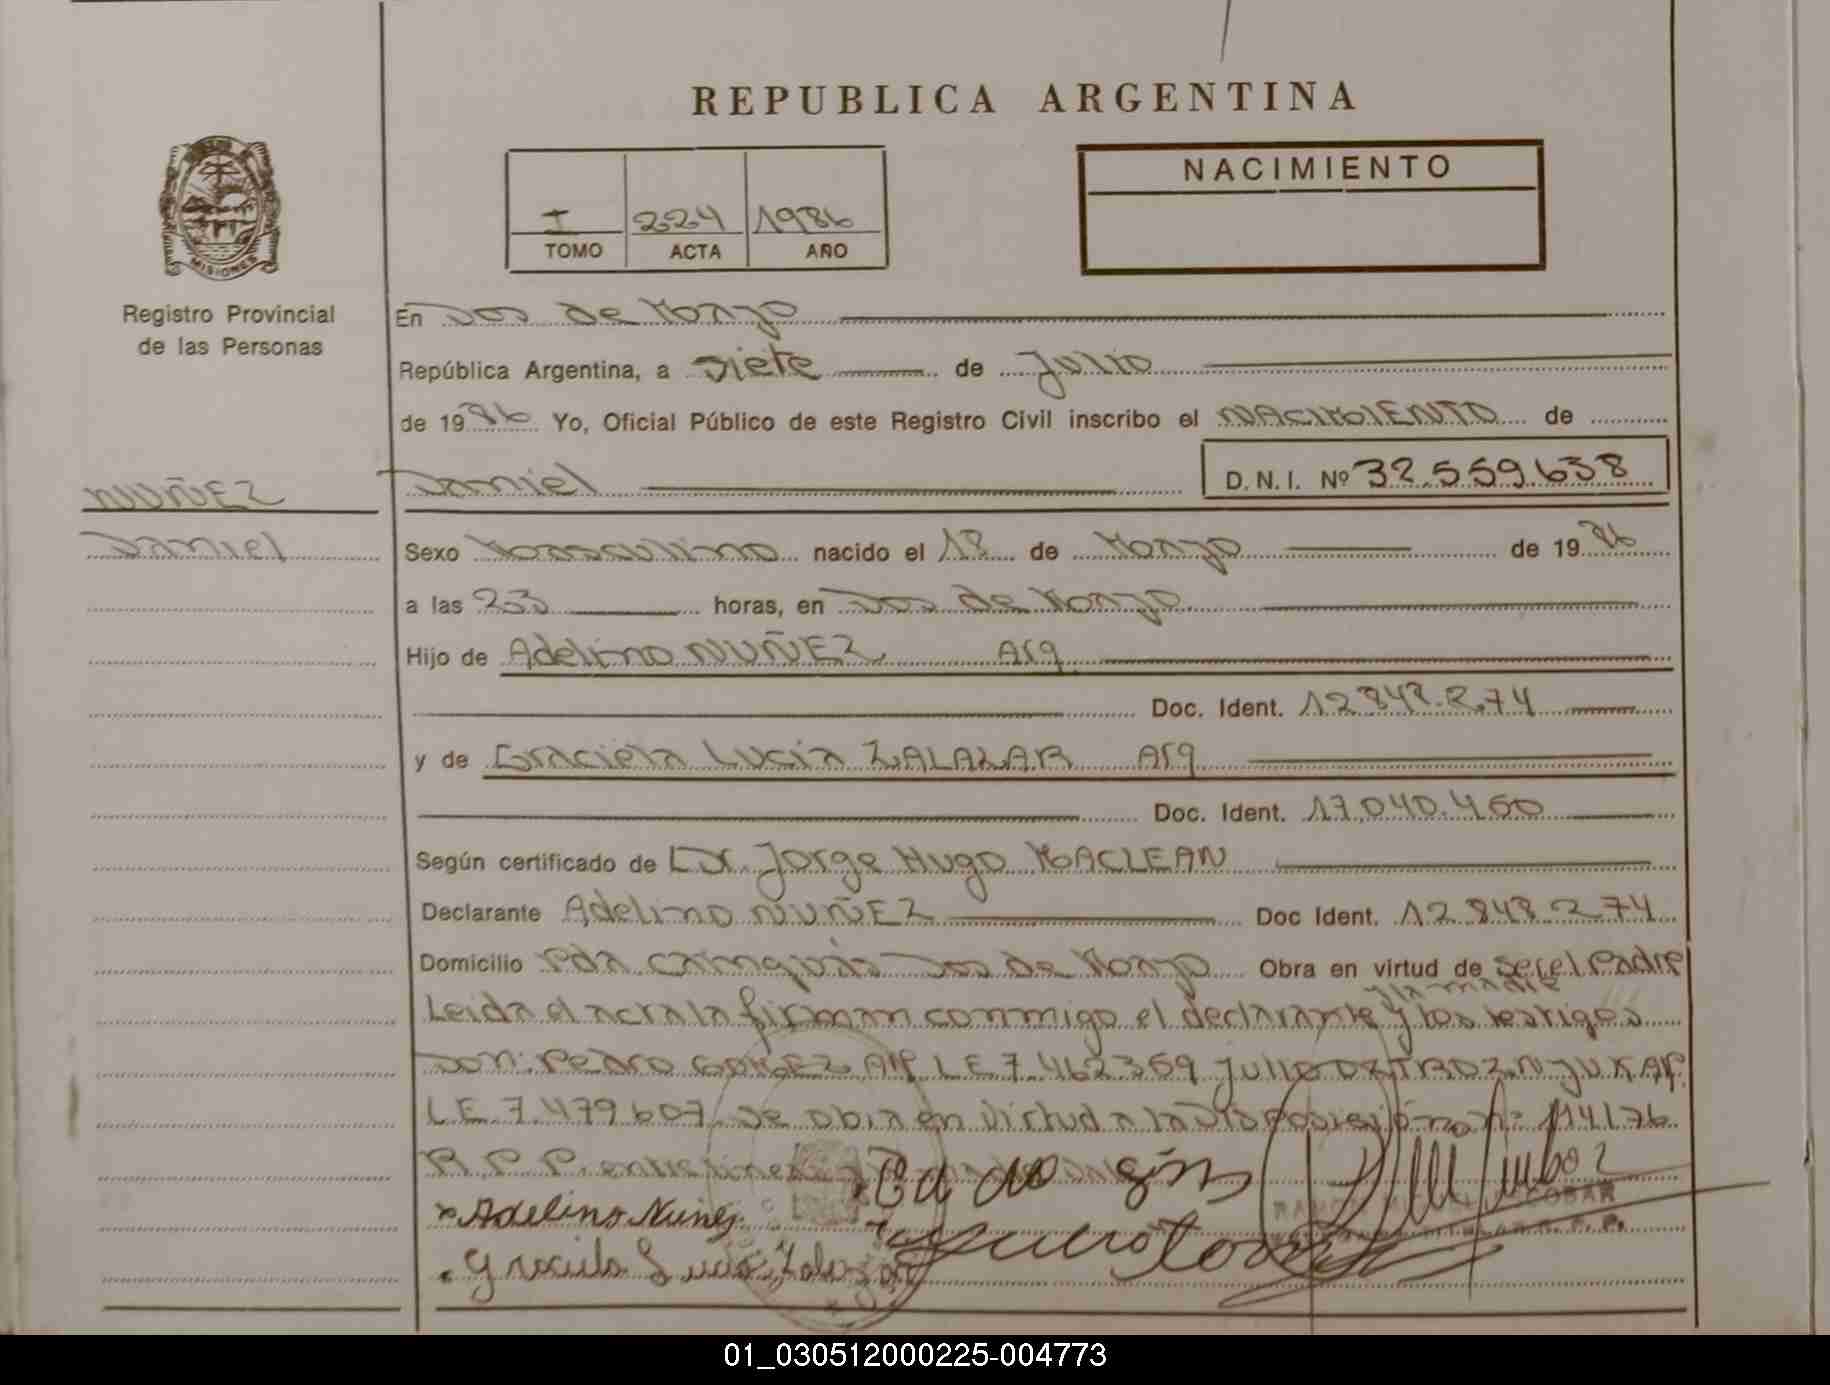 REPUBLICA ARGENTINA
MISIONES
Registro Provincial
de las Personas
I 224 1986
TOMO ACTA AÑO
NACIMIENTO
En Dos de Mayo
República Argentina, a siete de Julio
de 1986 Yo, Oficial Público de este Registro Civil inscribo el NACIMIENTO de
NUÑEZ
Daniel
Daniel D.N.I. Nº 32.559.638
Sexo Masculino nacido el 18 de Mayo de 1986
a las 23 horas, en Dos de Mayo
Hijo de Adelino NUÑEZ Arg
Doc. Ident. 12.848.274
y de Graciela Lucia ZALAZAR Arg
Doc. Ident. 17.040.460
Según certificado de Dr. Jorge Hugo MACLEAN
Declarante Adelino NUÑEZ Doc Ident. 12.848.274
Domicilio Pda Cainguás Dos de Mayo Obra en virtud de ser el Padre
y la madre
Leida el acta la firman conmigo el declarante y los testigos
Don: Pedro GOMEZ Arg LE 7.462.359 Julio
LE 7.479.607 se obra en virtud a la Disposición nº 114/76
R.P.P. entre lineas
Adelino Nuñez
Graciela Lucia Zalazar
ESCOBAR
01_030512000225-004773